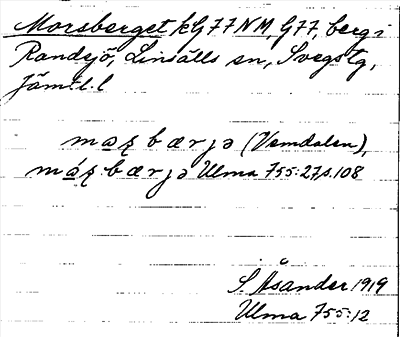 Morsberget kG77NM, G77, berg i
Randsjö, Linsälls sn, Svegs tg,
Jämtl. l
mas̨bærjə (Vemdalen),
más̨bærjə Ulma 755:27 s. 108
S. Åsander 1919
Ulma 755:12